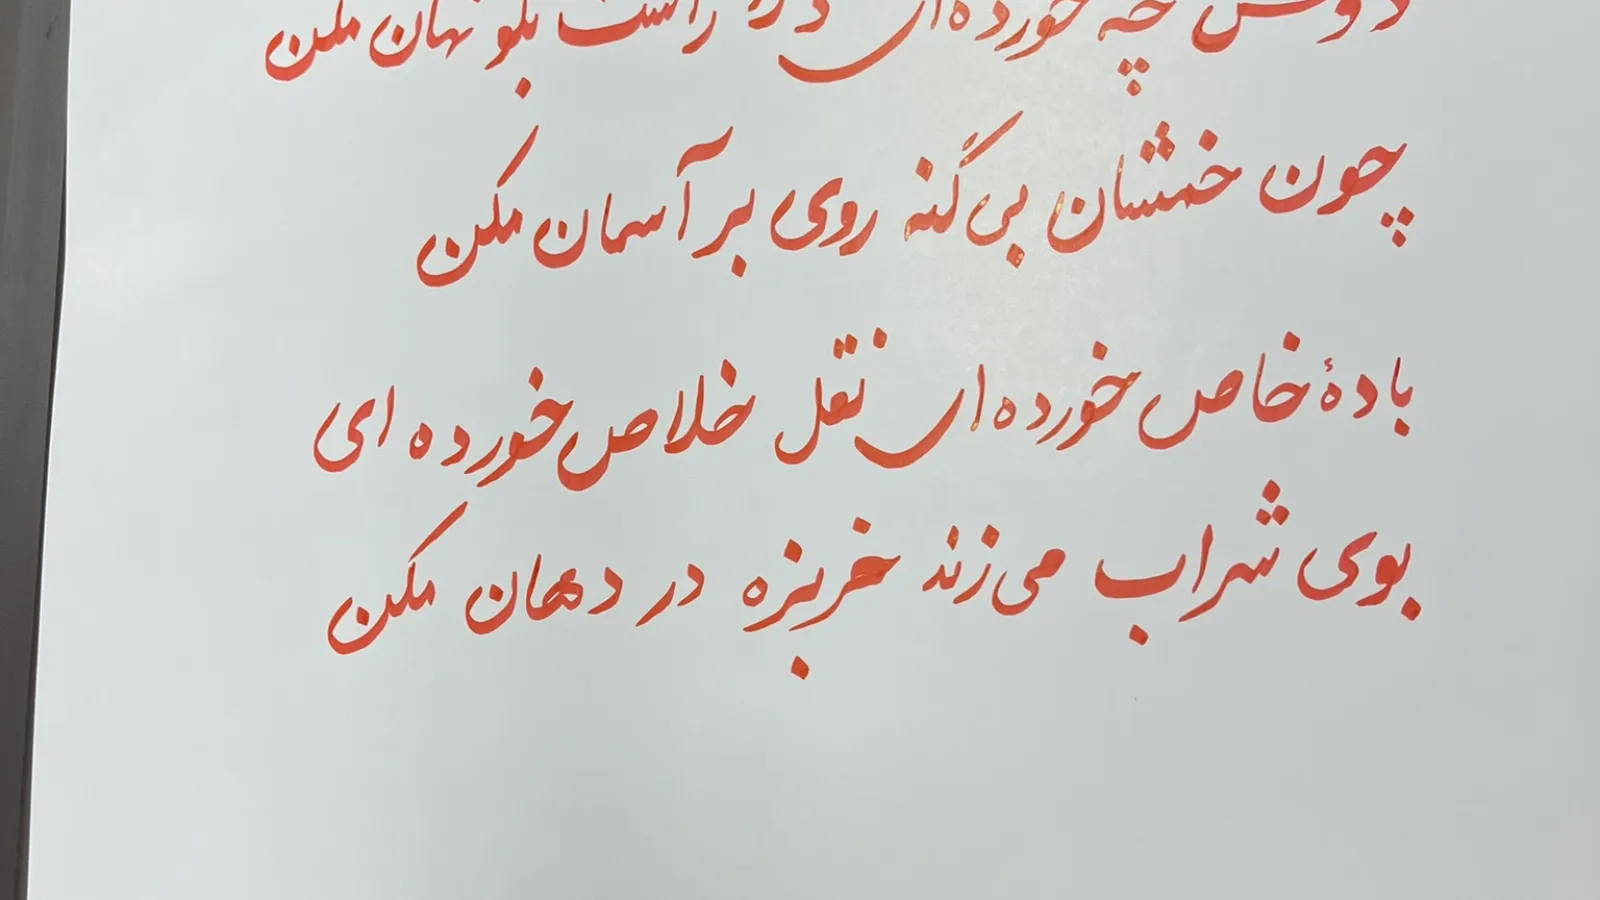 دوش چه خورده‌ای دلا راست بگو نهان مکن
چون خمشان بی‌گنه روی بر آسمان مکن
بادهٔ خاص خورده‌ای نقل خلاص خورده ای
بوی شراب می‌زند خربزه در دهان مکن